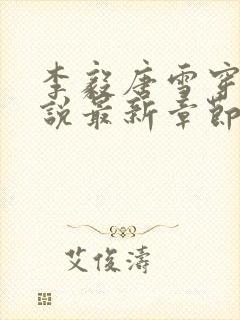 李毅唐雪穿
說最新章節
艾俊濤